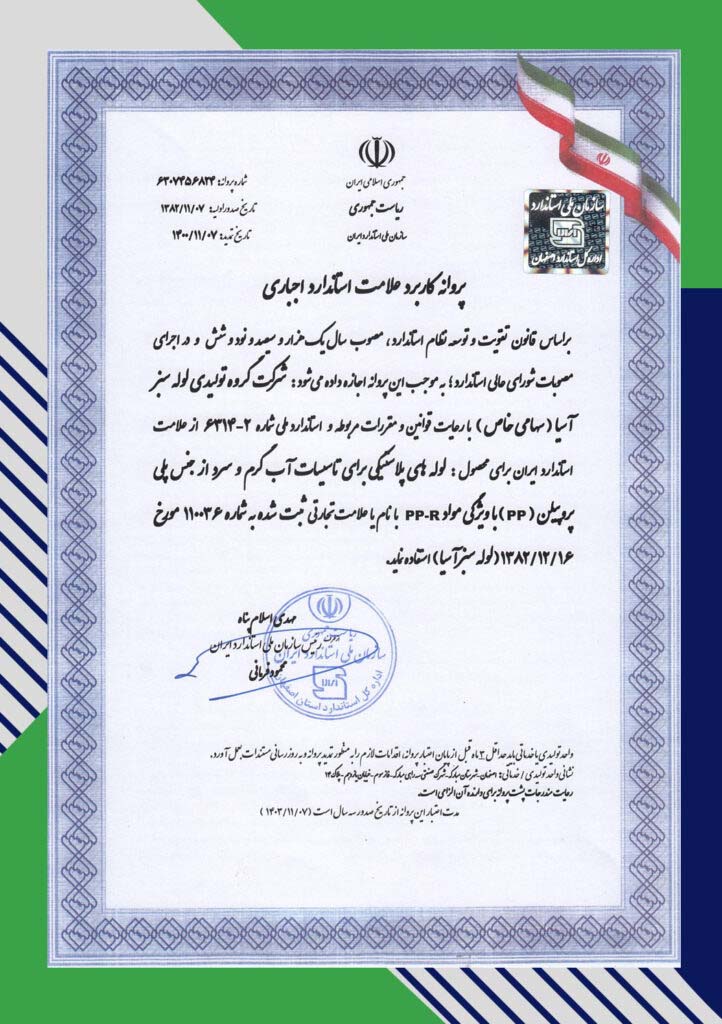 جمهوری اسلامی ایران
ریاست جمهوری
سازمان ملی استاندارد ایران
شماره پروانه: ۶۳۰۷۴۵۶۸۲۴
تاریخ صدور اولیه: ۱۳۸۲/۱۱/۰۷
تاریخ تمدید: ۱۴۰۰/۱۱/۰۷
سازمان ملی استاندارد
اداره کل استاندارد اصفهان
پروانه کاربرد علامت استاندارد اجباری
براساس قانون تقویت و توسعه نظام استاندارد، مصوب سال یک هزار و سیصد و نود و شش و در اجرای
مصوبات شورای عالی استاندارد؛ به موجب این پروانه اجازه داده می‌شود: شرکت گروه تولیدی لوله سبز
آسیا (سهامی خاص) با رعایت قوانین و مقررات مربوطه و استاندارد ملی شماره ۲-۶۳۱۴ از علامت
استاندارد ایران برای محصول: لوله های پلاستیکی برای تاسیسات آب گرم و سرد از جنس پلی
پروپیلن (PP) با ویژگی مواد PP-R با نام یا علامت تجارتی ثبت شده به شماره ۱۱۰۰۳۶ مورخ
۱۳۸۲/۱۲/۱۶ (لوله سبز آسیا) استفاده نماید.
مهدی اسلام پناه
رئیس سازمان ملی استاندارد ایران
محمود فرمانی
سازمان ملی استاندارد ایران
اداره کل استاندارد استان اصفهان
واحد تولیدی یا خدماتی باید حداقل ۳ ماه قبل از پایان اعتبار پروانه، اقدامات لازم را به منظور تمدید پروانه و به روز رسانی مستندات بعمل آورد.
نشانی واحد تولیدی / خدماتی: اصفهان-شهرستان مبارکه-شهرک صنعتی مبارکه-فاز سوم-خیابان پانزدهم-پلاک ۱۴
رعایت مندرجات پشت پروانه برای دارنده آن الزامی است.
مدت اعتبار این پروانه از تاریخ صدور سه سال است (۱۴۰۳/۱۱/۰۷)